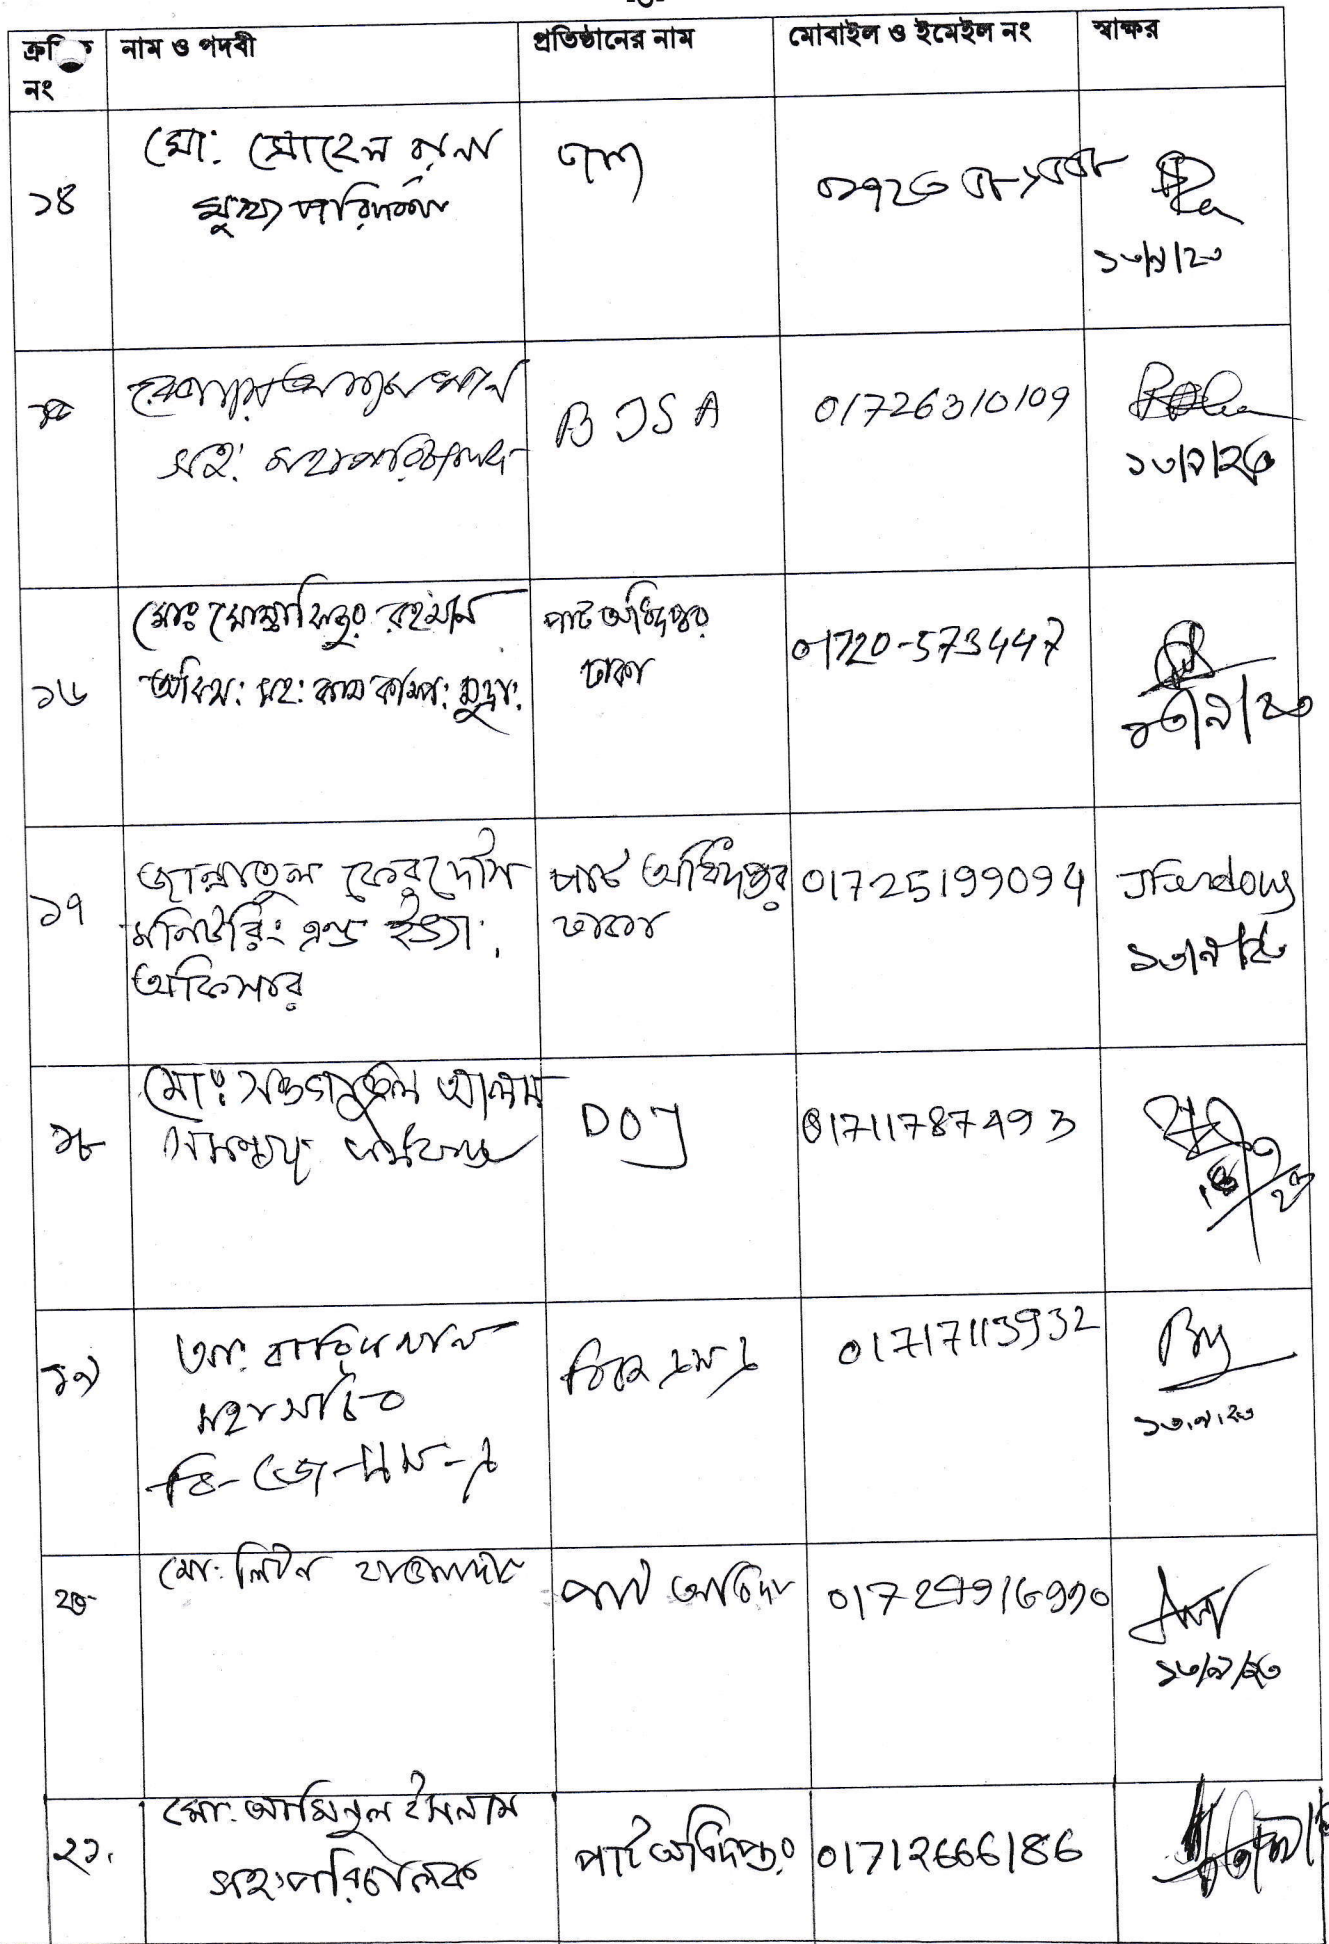 -৩-
নাম ও পদবী
প্রতিষ্ঠানের নাম
মোবাইল ও ইমেইল নং
স্বাক্ষর
নং
১৪
মো: সোহেল রানা
মুখ্য পরিদর্শক
১৩/৯/২৩
১৫
সহ: মহাপরিচালক
BJSA
01726310109
১৩/৯/২৩
১৬
মোঃ মোস্তাফিজুর রহমান
অফিস: সহ: কাম কম্পি: মুদ্রা:
পাট অধিদপ্তর
ঢাকা
01720-573447
১৩/৯/২৩
১৭
জান্নাতুল ফেরদৌস
মনিটরিং এন্ড ইভা:
অফিসার
পাট অধিদপ্তর
ঢাকা
01725199094
JFerdous
১৩/৯/২৩
১৮
মোঃ আলম
DOJ
01711787493
১৯
আ: বারিক খান
মহাসচিব
বি-জে-এম-এ
বিজেএমএ
01717113932
১৩.৯.২৩
২০
মো: লিটন
পাট অধিদ:
01724916990
১৩/৯/২৩
২১.
মো: আমিনুল ইসলাম
সহ:পরিচালক
পাট অধিদপ্তর
01712666186